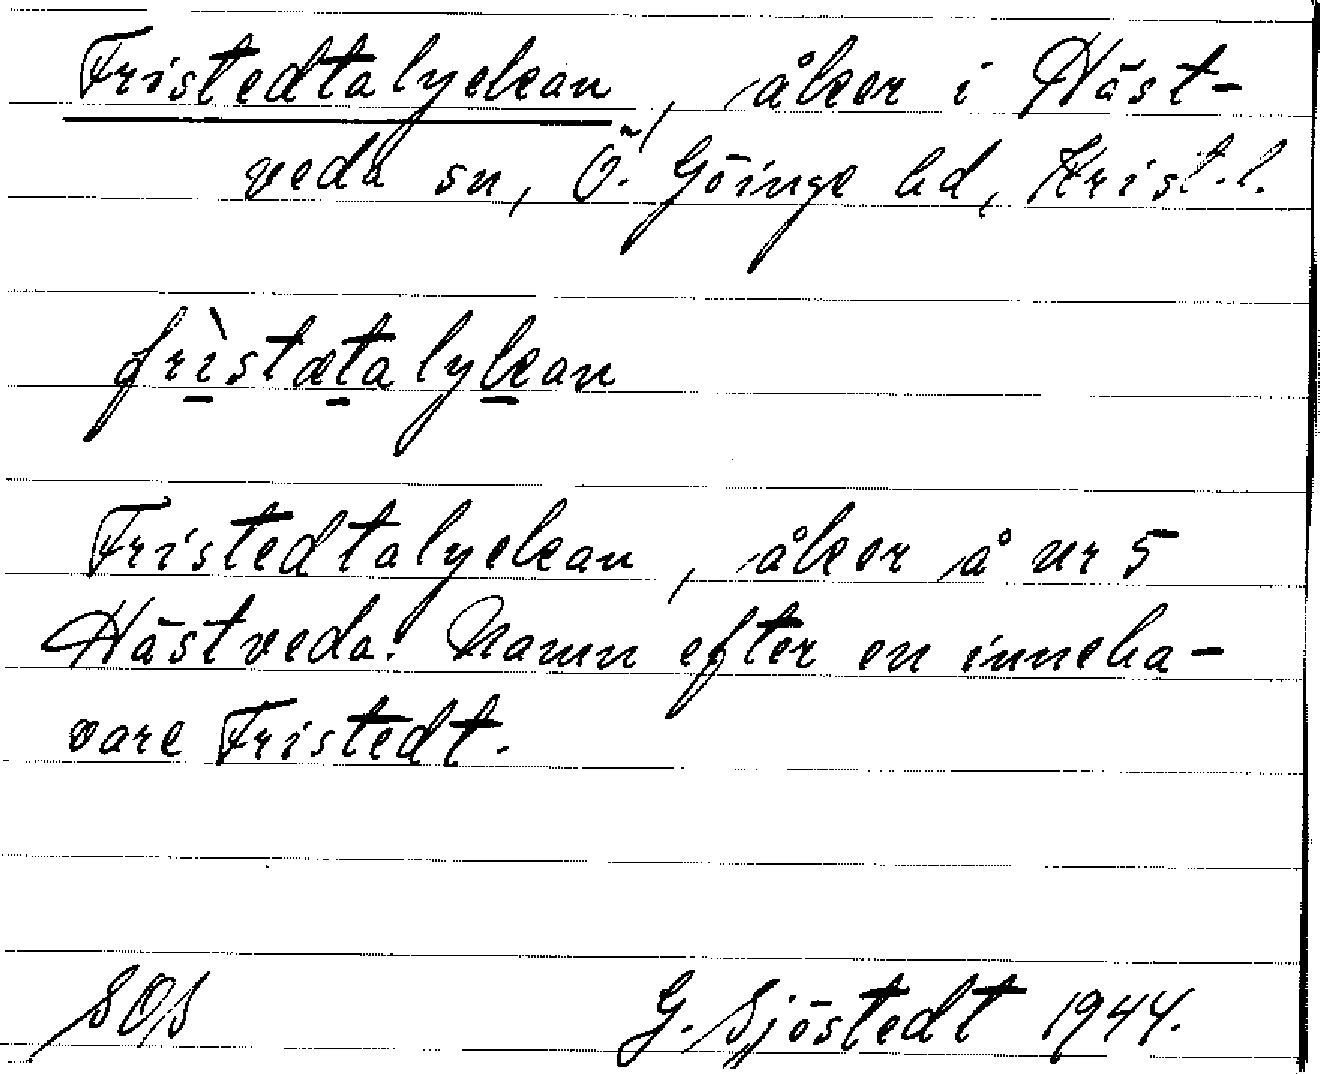 Fristedtalyckan, åker i Häst-
veda sn, Ö. Göinge hd, Krist. l.
frìstætalykan
Fristedtalyckan, åker å nr 5
Hästveda. Namn efter en inneha-
vare Fristedt.
SOS G. Sjöstedt 1944.